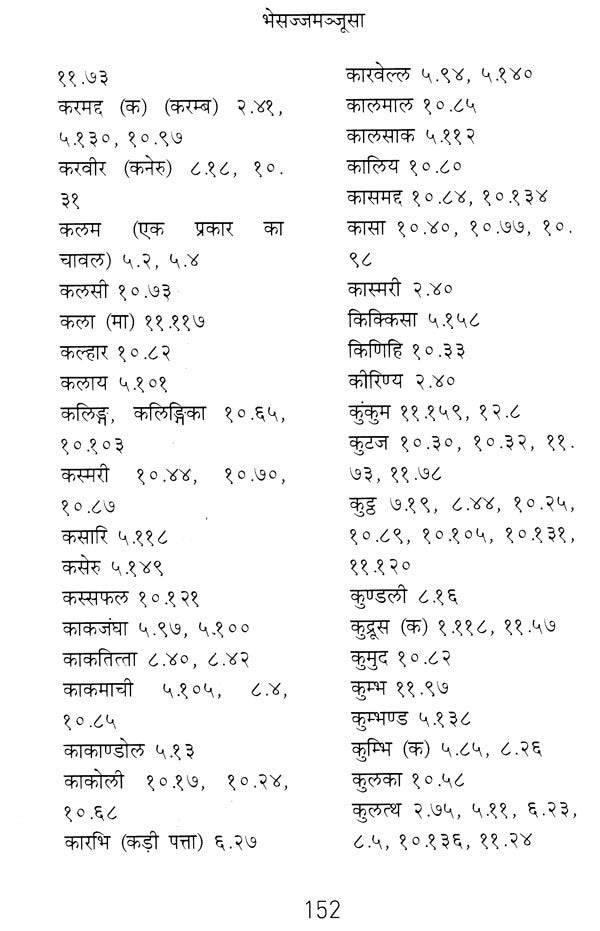 भेसज्जमञ्जूसा
११.७३
करमद्द (क) (करम्ब) २.४१,
५.१३०, १०.९७
करवीर (कनेरु) ८.१८, १०.
३१
कलम (एक प्रकार का
चावल) ५.२, ५.४
कलसी १०.७३
कला (मा) ११.११७
कल्हार १०.८२
कलाय ५.१०१
कलिङ्ग, कलिङ्गिका १०.६५,
१०.१०३
कस्मरी १०.४४, १०.७०,
१०.८७
कसारि ५.११८
कसेरु ५.१४९
कस्सफल १०.१२१
काकजंघा ५.९७, ५.१००
काकतित्ता ८.४०, ८.४२
काकमाची ५.१०५, ८.४,
१०.८५
काकाण्डोल ५.१३
काकोली १०.१७, १०.२४,
१०.६८
कारभि (कड़ी पत्ता) ६.२७
कारवेल्ल ५.९४, ५.१४०
कालमाल १०.८५
कालसाक ५.११२
कालिय १०.८०
कासमद्द १०.८४, १०.१३४
कासा १०.४०, १०.७७, १०.
९८
कास्मरी २.४०
किक्किसा ५.१५८
किणिहि १०.३३
कीरिण्य २.४०
कुंकुम ११.१५९, १२.८
कुटज १०.३०, १०.३२, ११.
७३, ११.७८
कुट्ठ ७.१९, ८.४४, १०.२५,
१०.८९, १०.१०५, १०.१३१,
११.१२०
कुण्डली ८.१६
कुद्रूस (क) १.११८, ११.५७
कुमुद १०.८२
कुम्भ ११.९७
कुम्भण्ड ५.१३८
कुम्भि (क) ५.८५, ८.२६
कुलका १०.५८
कुलत्थ २.७५, ५.११, ६.२३,
८.५, १०.१३६, ११.२४
152